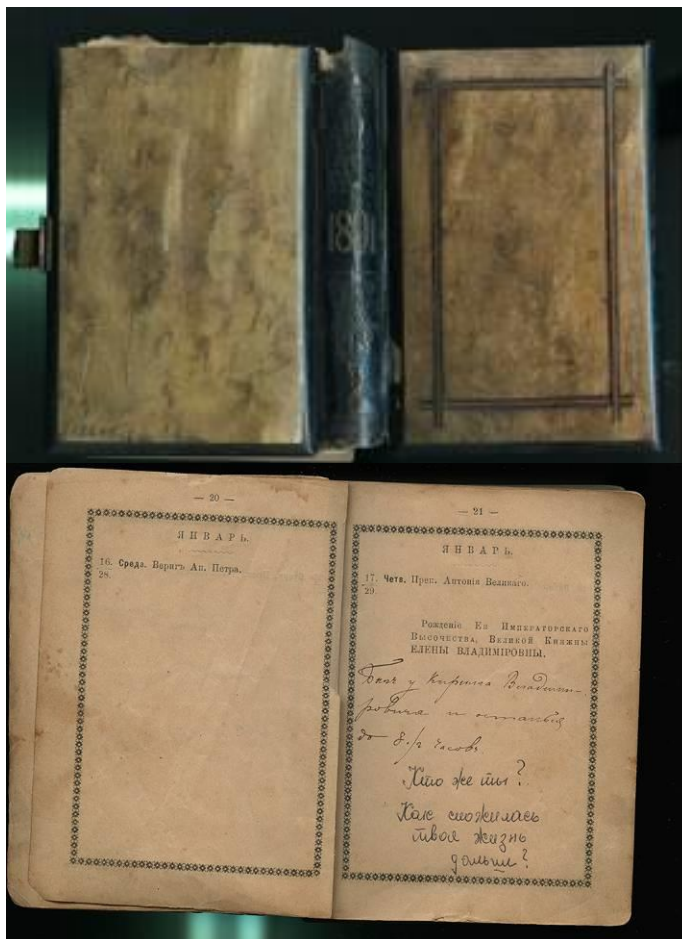 1891
— 20 —
ЯНВАРЬ.
16. Среда. Веригъ Ап. Петра.
28.
— 21 —
ЯНВАРЬ.
17. Четв. Преп. Антонія Великаго.
29.
Рожденіе Ея Императорскаго
Высочества, Великой Княжны
ЕЛЕНЫ ВЛАДИМІРОВНЫ.
Былъ у Кирилла Владими-
ровича и остался
до 8 1/2 часовъ
Кто же ты?
Как сложилась
твоя жизнь
дальше?